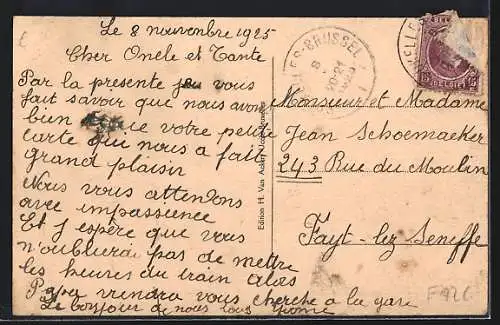 Le 8 nouvembre 1925
Cher Oncle et Tante
Par la presente je vous
fait savoir que nous avon
bien que votre petite
carte qui nous a fait
grand plaisir
Nous vous attendons
avec impassience
Et j espère que vous
n'oublurai pas de mettre
les heures du train
Papa viendra vous cherche a la gare
Le bonjour de nous tous
Edition H. Van Acker
BRUSSEL
8
Monsieur et Madame
Jean Schoemaeker
243 Rue du Moulin
Fayt-lez Seneffe
15 BELGIE 15
F926